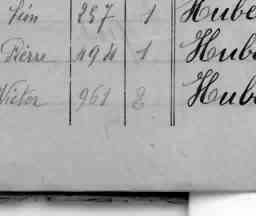 257 1 Hube
Pierre 494 1 Hube
Victor 961 2 Hube